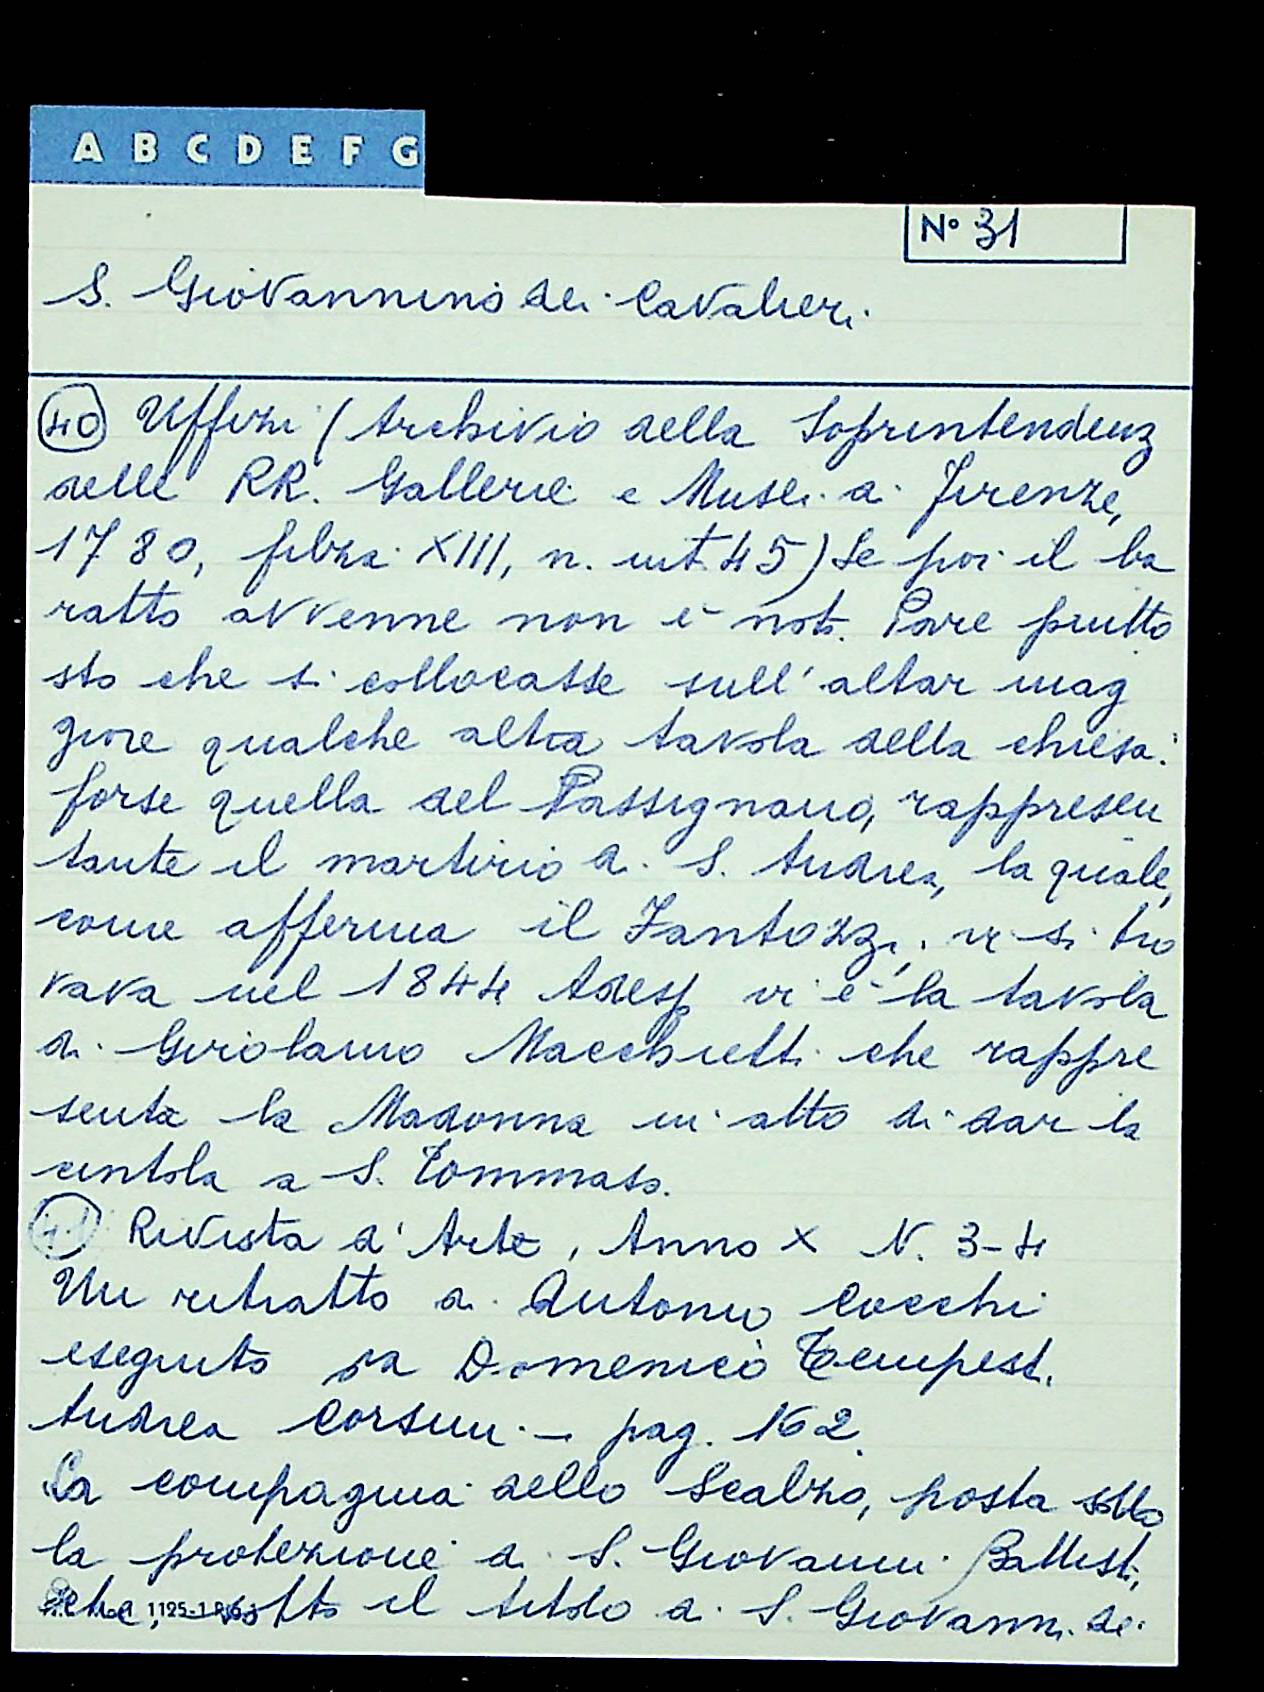 A B C D E F G
Nº 31
S. Giovannino dei Cavalieri.
40 Uffizi (Archivio della Soprintendenz
delle RR. Gallerie e Musei di Firenze,
1780, filza XIII, n. int. 45) Se poi il ba
ratto avvenne non è noto. Pare piutto
sto che si collocasse sull'altar mag
giore qualche altra tavola della chiesa:
forse quella del Passignano, rappresen
tante il martirio di S. Andrea, la quale,
come afferma il Fantozzi, vi si tro
vava nel 1844 Adesso vi è la tavola
di Girolamo Macchietti che rappre
senta la Madonna in atto di dar la
cintola a S. Tommaso.
41 Rivista d'Arte, Anno X N. 3-4
Un ritratto di Antonio Cocchi
eseguito da Domenico Tempesti.
Andrea Corsini - pag. 162.
La compagnia dello Scalzo, posta sotto
la protezione di S. Giovanni Battista,
che, sotto il titolo di S. Giovanni dei